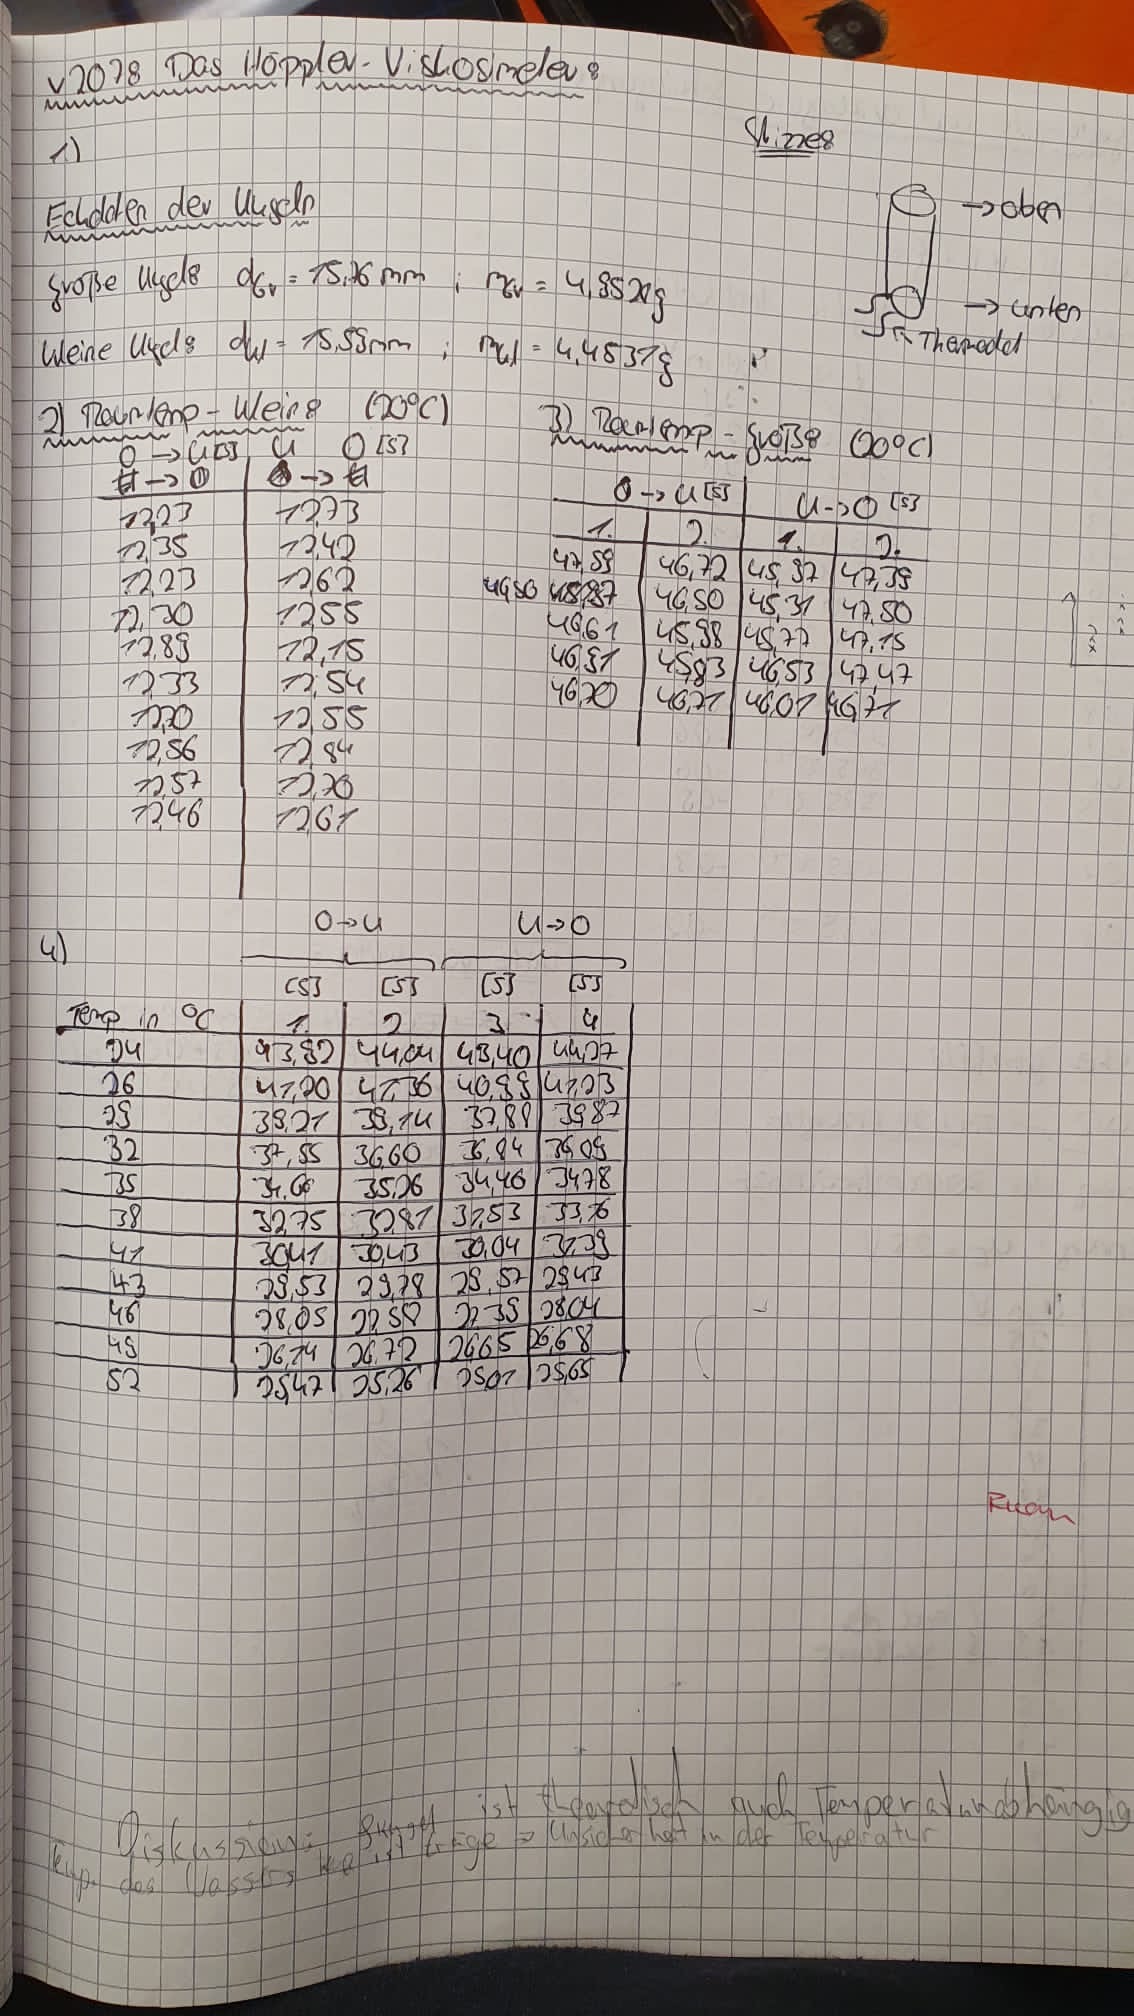 V2078 Das Höppler-Viskosimeter:
1)
Skizze:
Eckdaten der Kugeln
→ oben
→ unten
große Kugel: dGr = 15,76 mm ; mGr = 4,9529g
kleine Kugel: dkl = 15,59mm ; mkl = 4,4531g
2) Raumtemp-kleine (20°C)
3) Raumtemp-große (20°C)
O → U [s] U O [s]
O → U [s] U → O [s]
1. 2. 1. 2.
12,23 12,73
12,35 12,42
12,23 12,62
12,30 12,55
12,89 12,15
12,33 12,54
12,20 12,55
12,56 12,84
12,57 12,70
12,46 12,61
47,59 46,72 45,37 47,39
46,50 46,50 45,31 47,50
46,61 45,98 45,77 47,15
46,91 45,83 46,53 47,47
46,20 46,71 46,01 46,71
4)
O → U U → O
[s] [s] [s] [s]
Temp in °C 1. 2 3 4
24 43,82 44,04 43,40 44,27
26 41,20 41,36 40,99 41,23
29 39,21 39,14 37,88 39,87
32 37,55 36,60 36,84 36,09
35 34,66 35,26 34,46 34,78
38 32,75 32,81 31,53 33,16
41 30,41 30,43 30,04 31,39
43 29,53 29,78 29,57 29,43
46 28,05 27,58 27,39 28,04
49 26,74 26,72 26,65 26,68
52 25,47 25,26 25,01 25,65
Diskussion: Kugel ist theoretisch auch Temperaturabhängig
Temp. des Wassers ist träge → Unsicherheit in der Temperatur